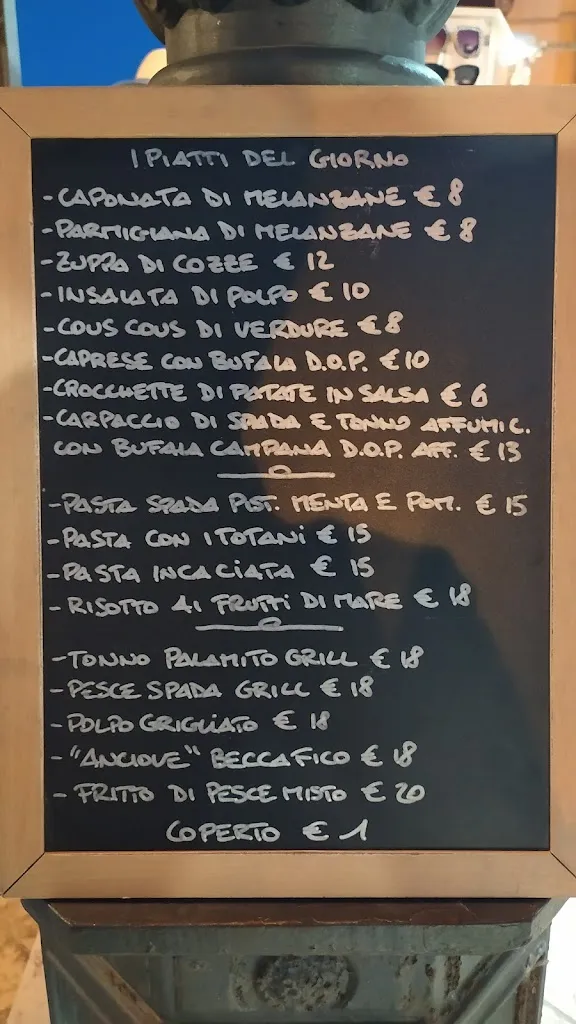 I PIATTI DEL GIORNO
- CAPONATA DI MELANZANE € 8
- PARMIGIANA DI MELANZANE € 8
- ZUPPA DI COZZE € 12
- INSALATA DI POLPO € 10
- COUS COUS DI VERDURE € 8
- CAPRESE CON BUFALA D.O.P. € 10
- CROCCHETTE DI PATATE IN SALSA € 6
- CARPACCIO DI SPADA E TONNO AFFUMIC.
CON BUFALA CAMPANA D.O.P. AFF. € 13
- PASTA SPADA PIST. MENTA E POM. € 15
- PASTA CON I TOTANI € 15
- PASTA INCACIATA € 15
- RISOTTO AI FRUTTI DI MARE € 18
- TONNO PALAMITO GRILL € 18
- PESCE SPADA GRILL € 18
- POLPO GRIGLIATO € 18
- "ANCIOVE" BECCAFICO € 18
- FRITTO DI PESCE MISTO € 20
COPERTO € 1